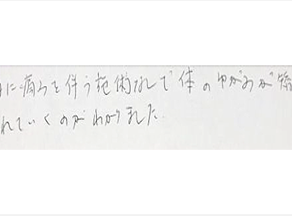 に痛みを伴う施術なしで体のゆがみが矯
れていくのがわかりました